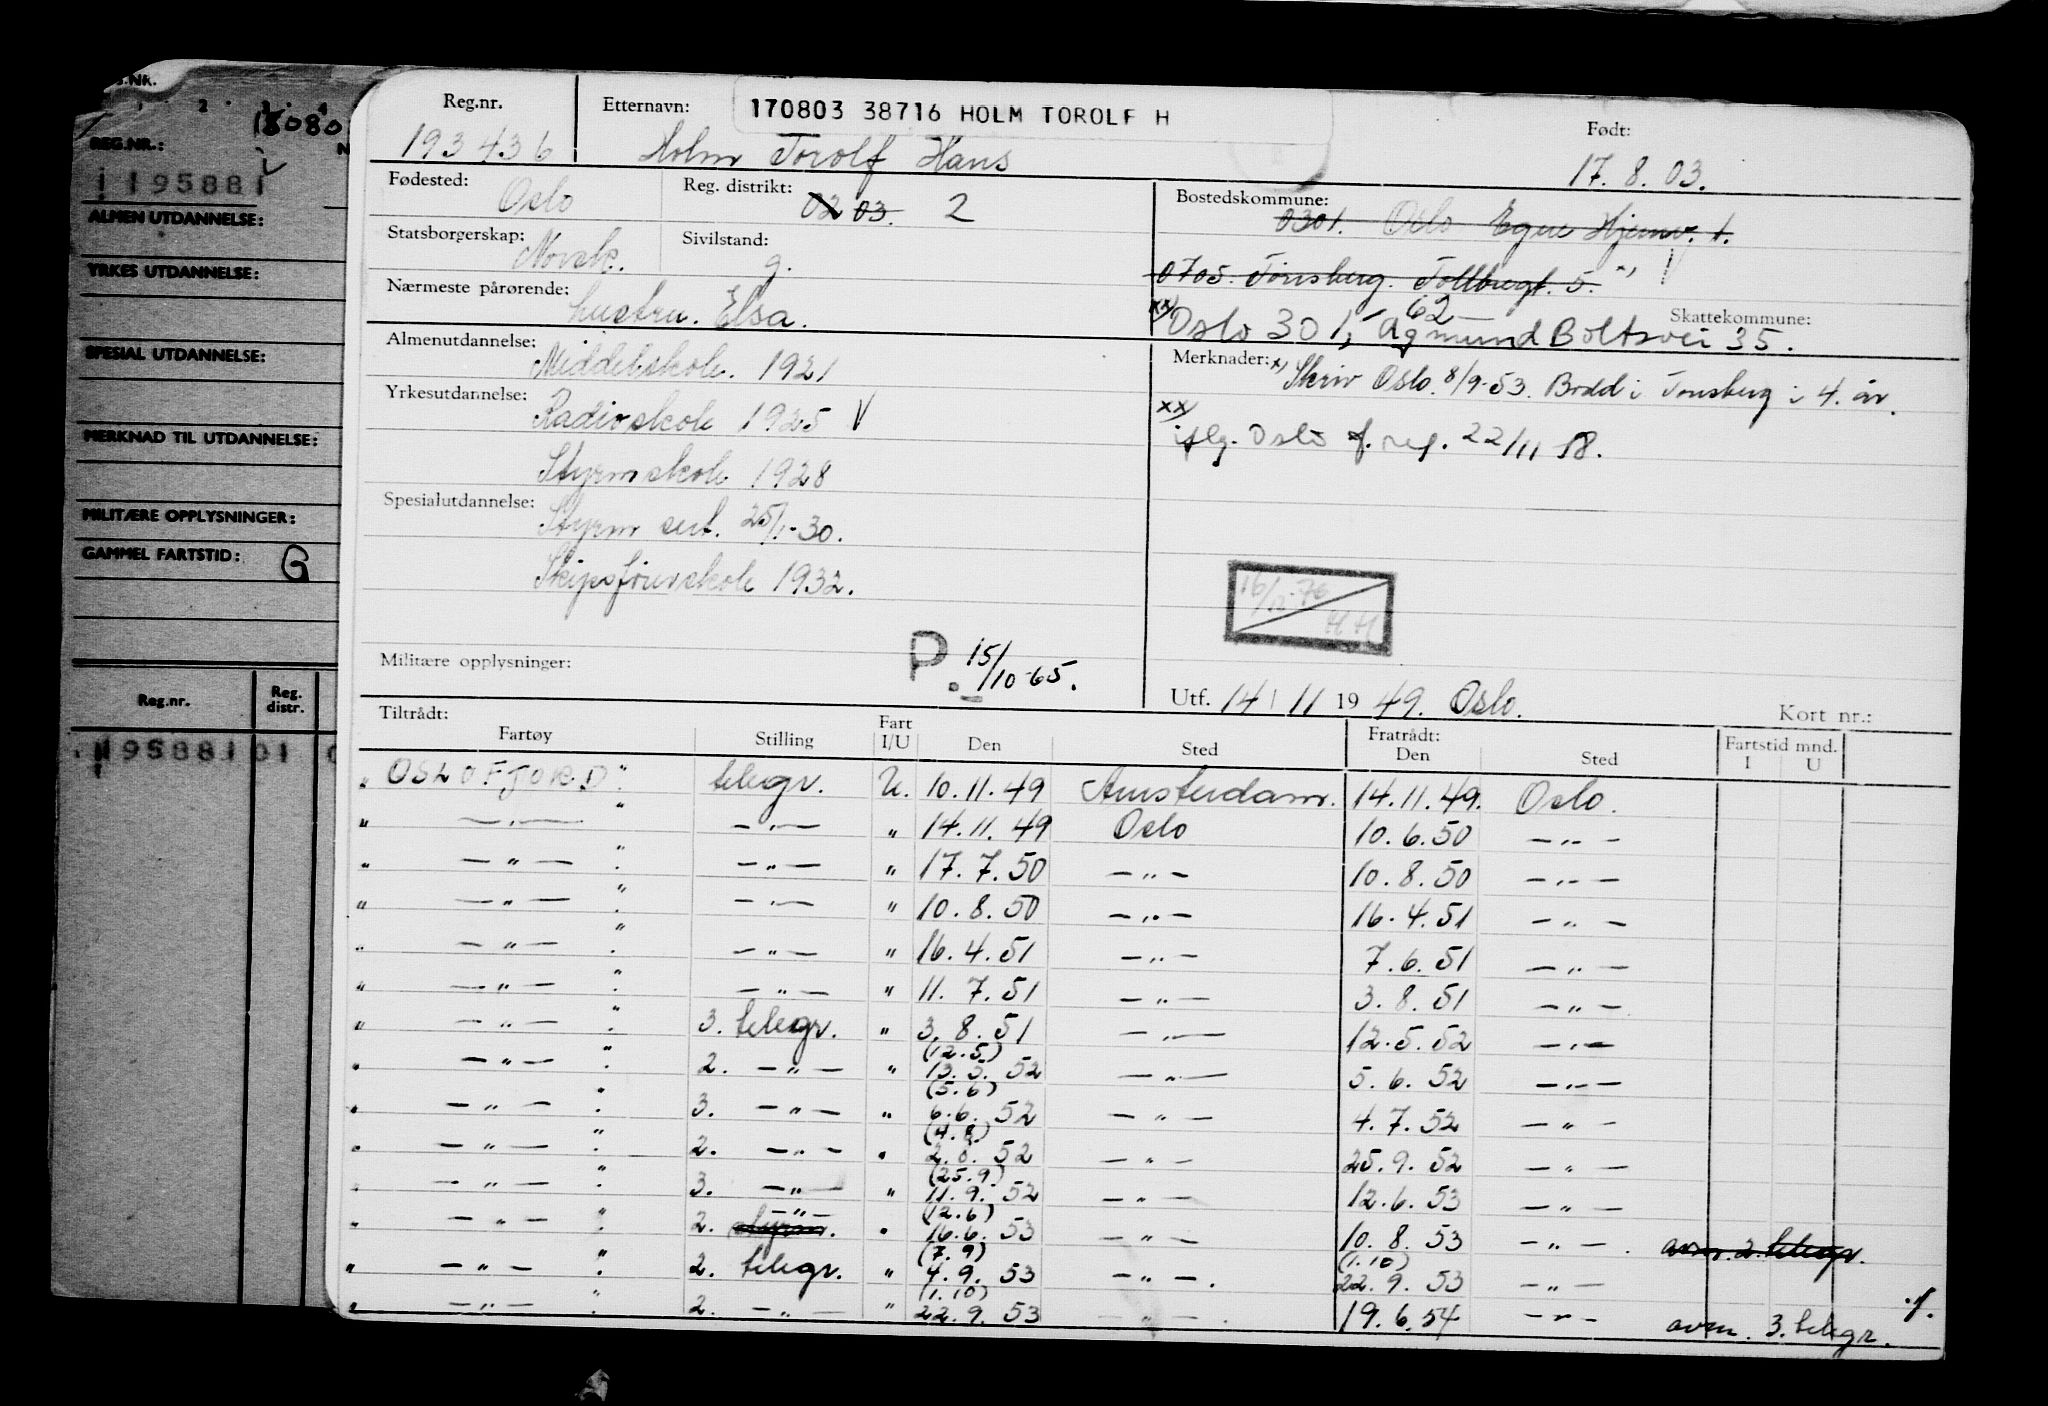 S.NK.
1 2 3 4
18080
REG.NR.: N
195881
ALMEN UTDANNELSE:
YRKES UTDANNELSE:
SPESIAL UTDANNELSE:
MERKNAD TIL UTDANNELSE:
MILITÆRE OPPLYSNINGER:
GAMMEL FARTSTID: G
Reg.nr. Reg. distr.
195881 01 0
Reg.nr. Etternavn: 170803 38716 HOLM TOROLF H Født:
193436 Holm Torolf Hans 17.8.03.
Fødested: Oslo Reg. distrikt: 02 03. 2
Statsborgerskap: Norsk. Sivilstand: g.
Nærmeste pårørende: hustru. Elsa.
Bostedskommune: 0301. Oslo Egne Hjemv. 1.
0705. Tønsberg. Tollbugt. 5. x)
xx) Oslo 301, Agmund Boltsvei 35. 62
Skattekommune:
Almenutdannelse: Middelskole. 1921
Yrkesutdannelse: Radioskole 1925 V
Styrmskole 1928
Spesialutdannelse: Styrm sert. 25/1-30.
Skipsførerskole 1932.
Militære opplysninger: P. 15/10-65.
Merknader: x) Skriv Oslo. 8/9-53. Bodd i Tønsberg i 4. år.
xx) iflg. Oslo f. reg. 22/11 58.
16/12-76 HH
Utf. 14/11 1949. Oslo. Kort nr.:
Tiltrådt: Fratrådt:
Fartøy Stilling Fart I/U Den Sted Den Sted Fartstid mnd. I U
" OSLOFJORD" telegr. U. 10.11.49 Amsterdam. 14.11.49. Oslo.
" — " — " — " — " 14.11.49 Oslo 10.6.50 — " —
" — " — " — " — " 17.7.50 — " — 10.8.50 — " —
" — " — " — " — " 10.8.50 — " — 16.4.51 — " —
" — " — " — " — " 16.4.51 — " — 7.6.51 — " —
" — " — " — " — " 11.7.51 — " — 3.8.51 — " —
" — " — " 3. telegr. " 3.8.51 — " — 12.5.52 — " —
" — " — " 2. — " — " (12.5) 13.5.52 — " — 5.6.52 — " —
" — " — " 3. — " — " (5.6) 6.6.52 — " — 4.7.52 — " —
" — " — " 2. — " — " (4.8) 2.8.52 — " — 25.9.52 — " —
" — " — " 3. — " — " (25.9) 11.9.52 — " — 12.6.53 — " —
" — " — " 2. styrm. — " — " (12.6) 16.6.53 — " — 10.8.53 — " — . avm. 2. telegr.
" — " — " 2. telegr. " (7.9) 4.9.53 — " — . (1.10) 22.9.53 — " —
" — " — " 2. — " — " (1.10) 22.9.53 — " — . 19.6.54 — " — avm. 3. telegr. ./.